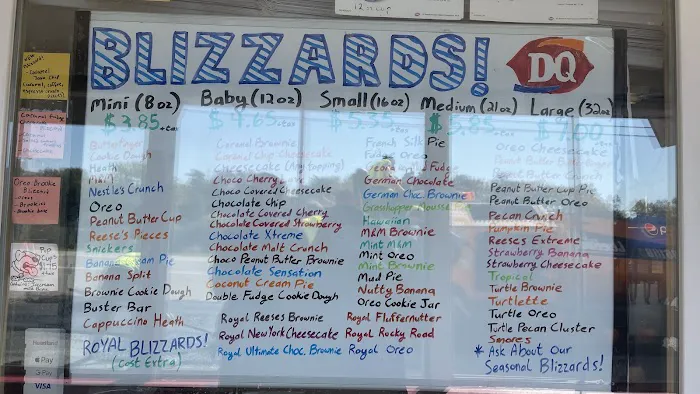 BLIZZARDS!
DQ
Mini (8oz) Baby (12oz) Small (16oz) Medium (21oz) Large (32oz)
$3.85 +tax $4.65 +tax $5.35 $5.85 +tax
Butterfinger
Cookie Dough
Heath
M&M
Nestle's Crunch
Oreo
Peanut Butter Cup
Reese's Pieces
Snickers
Banana Cream Pie
Banana Split
Brownie Cookie Dough
Buster Bar
Cappuccino Heath
ROYAL BLIZZARDS!
(Cost Extra)
Caramel Brownie
Caramel Chip Cheesecake
Cheesecake (Any topping)
Choco Cherry
Choco Covered Cheesecake
Chocolate Chip
Chocolate Covered Cherry
Chocolate Covered Strawberry
Chocolate Xtreme
Chocolate Malt Crunch
Choco Peanut Butter Brownie
Chocolate Sensation
Coconut Cream Pie
Double Fudge Cookie Dough
Royal Reeses Brownie
Royal New York Cheesecake
Royal Ultimate Choc. Brownie
French Silk Pie
Fudge Oreo
Fudge
German Chocolate
German Choc. Brownie
Grasshopper
Hawaiian
M&M Brownie
Mint M&M
Mint Oreo
Mint Brownie
Mud Pie
Nutty Banana
Oreo Cookie Jar
Royal Fluffernutter
Royal Rocky Road
Royal Oreo
Oreo Cheesecake
Peanut Butter
Peanut Butter
Peanut Butter Cup Pie
Peanut Butter Oreo
Pecan Crunch
Pumpkin Pie
Reeses Extreme
Strawberry Banana
Strawberry Cheesecake
Tropical
Turtle Brownie
Turtlette
Turtle Oreo
Turtle Pecan Cluster
Smores
* Ask About Our
Seasonal Blizzards!
Oreo Brookie
Blizzard
Pup
Cup
Pay
Pay
VISA
pepsi